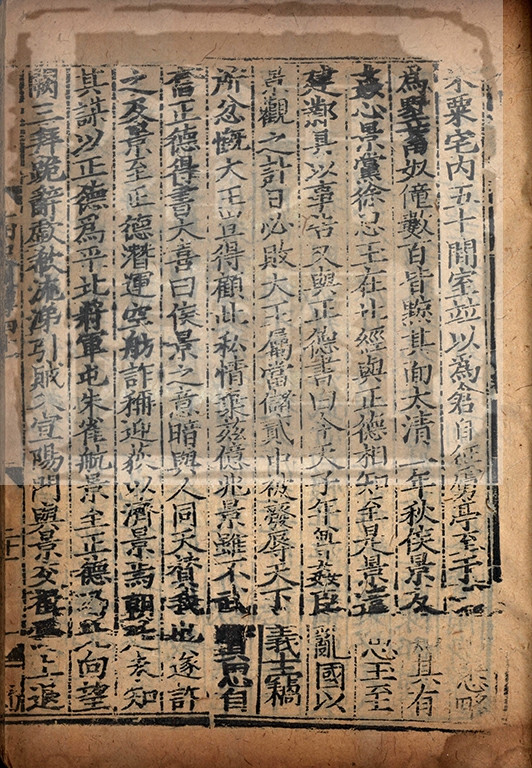 米粟宅內五十間室並以爲倉自征虜亭至于
爲墅畜奴僮數百皆黥其面太清二年秋侯景反 其有
姦心景黨徐思王在北經與正德相知至是景遣 思王至
建鄴具以事告又與正德書曰今天子年尊姦臣 亂國以
景觀之計日必敗大王屬當儲貳中被廢辱天下 義士竊
所忿慨大王豈得顧此私情棄茲億兆景雖不武 實思自
奮正德得書大喜曰侯景之意暗與人同天贊我也 遂許
之及景至正德潛運空舫詐稱迎荻以濟景焉朝廷 未知
其謀以正德爲平北將軍屯朱雀航景至正德 向望
闕三拜跪辭歔欷流涕引賊入宣陽門與景交 退